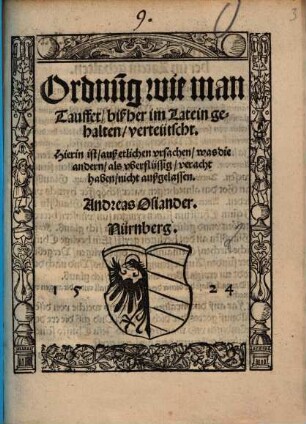 9.
3
Ordnũg wie man
Tauffet/ bißher im Latein ge-
halten/ verteütscht.
Hierin ist/ auß etlichen vrsachen/ was die
andern/ als vberflüssig/ veracht
haben/ nicht außgelassen.
Andreas Osiander.
Nürnberg.
15 24